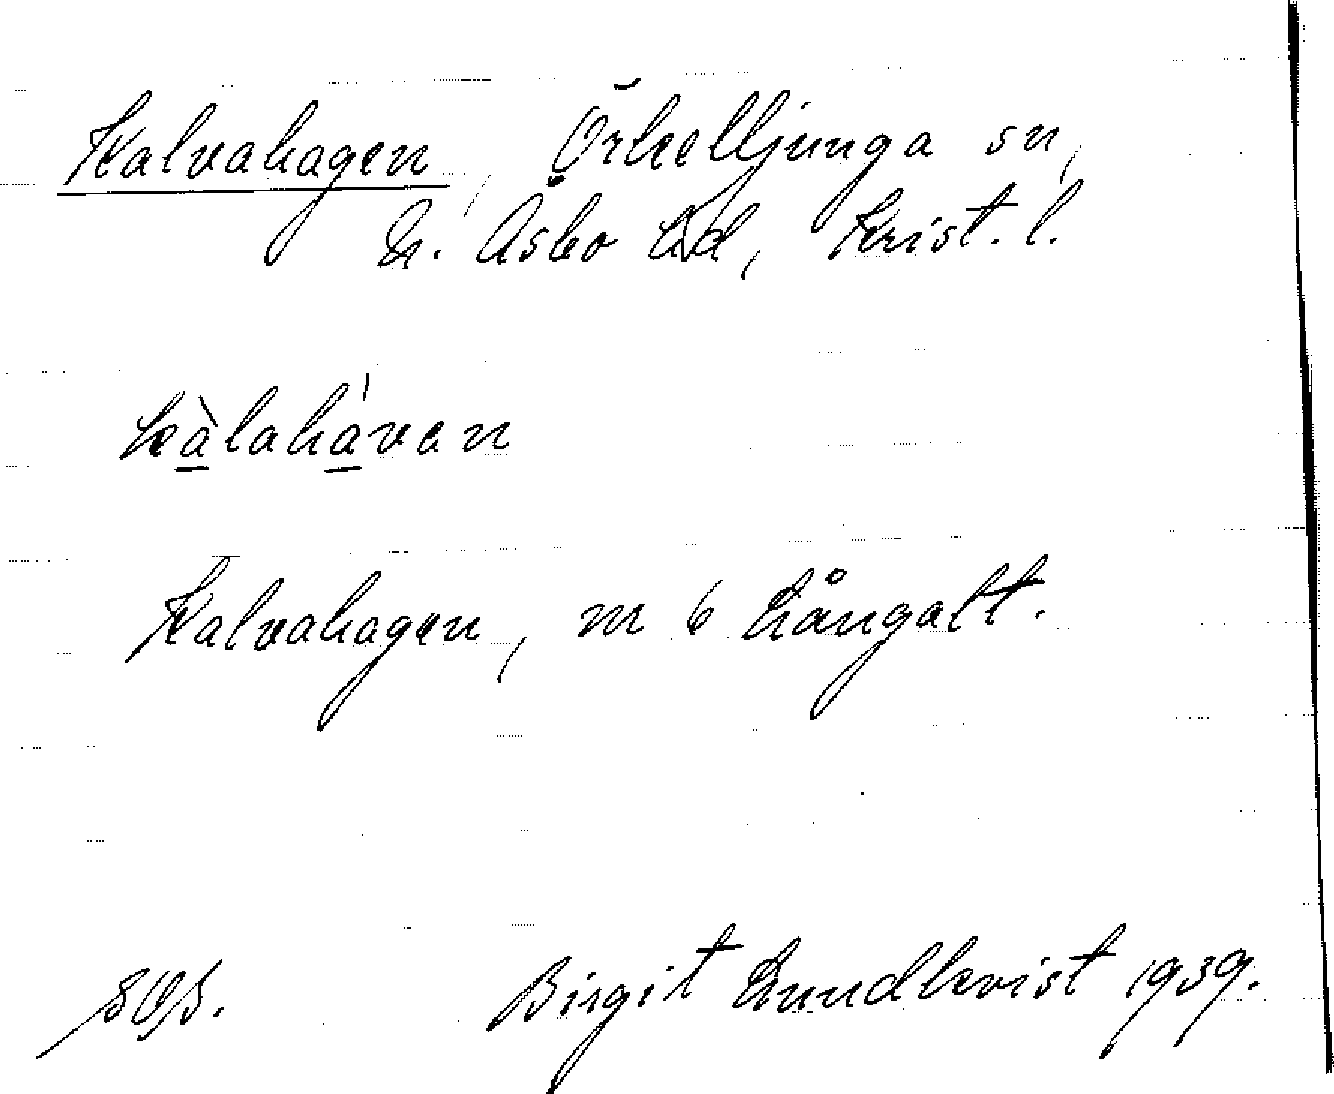 Kalvahagen, Örkelljunga sn,
N. Åsbo hd, Krist. l.
kàlahávan
Kalvahagen, nr 6 Långalt.
Birgit Lundkvist 1939.